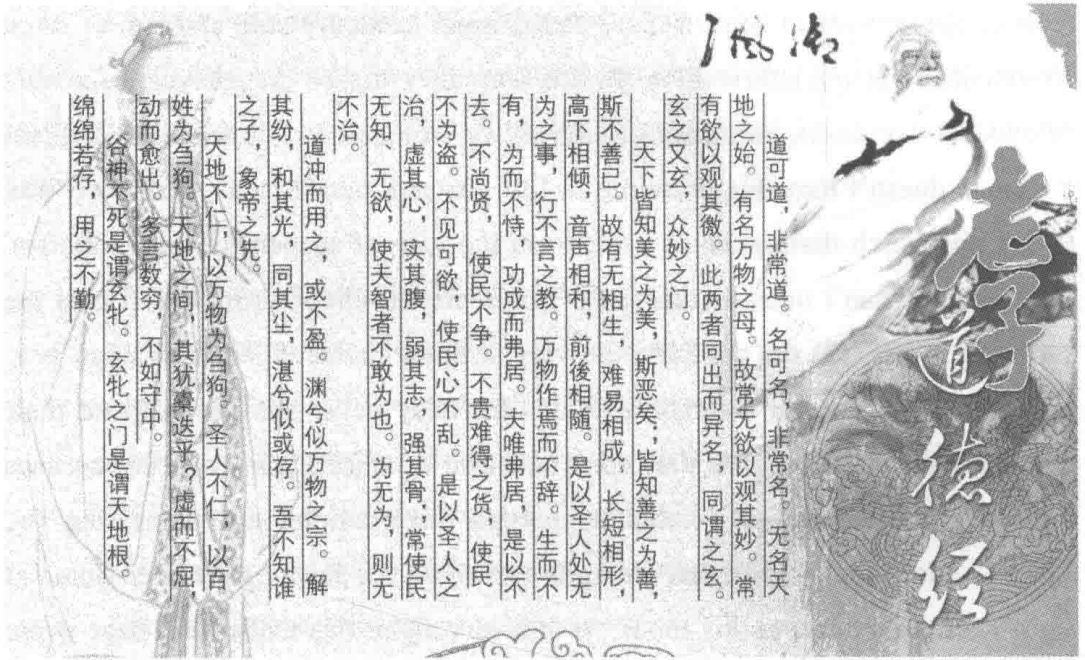 老子
道德经
御风
道可道，非常道。名可名，非常名。无名天
地之始。有名万物之母。故常无欲以观其妙。常
有欲以观其微。此两者同出而异名，同谓之玄。
玄之又玄，众妙之门。
天下皆知美之为美，斯恶矣；皆知善之为善，
斯不善已。故有无相生，难易相成，长短相形，
高下相倾，音声相和，前後相随。是以圣人处无
为之事，行不言之教。万物作焉而不辞。生而不
有，为而不恃，功成而弗居。夫唯弗居，是以不
去。不尚贤，使民不争。不贵难得之货，使民
不为盗。不见可欲，使民心不乱。是以圣人之
治，虚其心，实其腹，弱其志，强其骨，常使民
无知、无欲，使夫智者不敢为也。为无为，则无
不治。
道冲而用之，或不盈。渊兮似万物之宗。解
其纷，和其光，同其尘，湛兮似或存。吾不知谁
之子，象帝之先。
天地不仁，以万物为刍狗。圣人不仁，以百
姓为刍狗。天地之间，其犹囊迭乎，虚而不屈，
动而愈出。多言数穷，不如守中。
谷神不死是谓玄牝。玄牝之门是谓天地根。
绵绵若存，用之不勤。